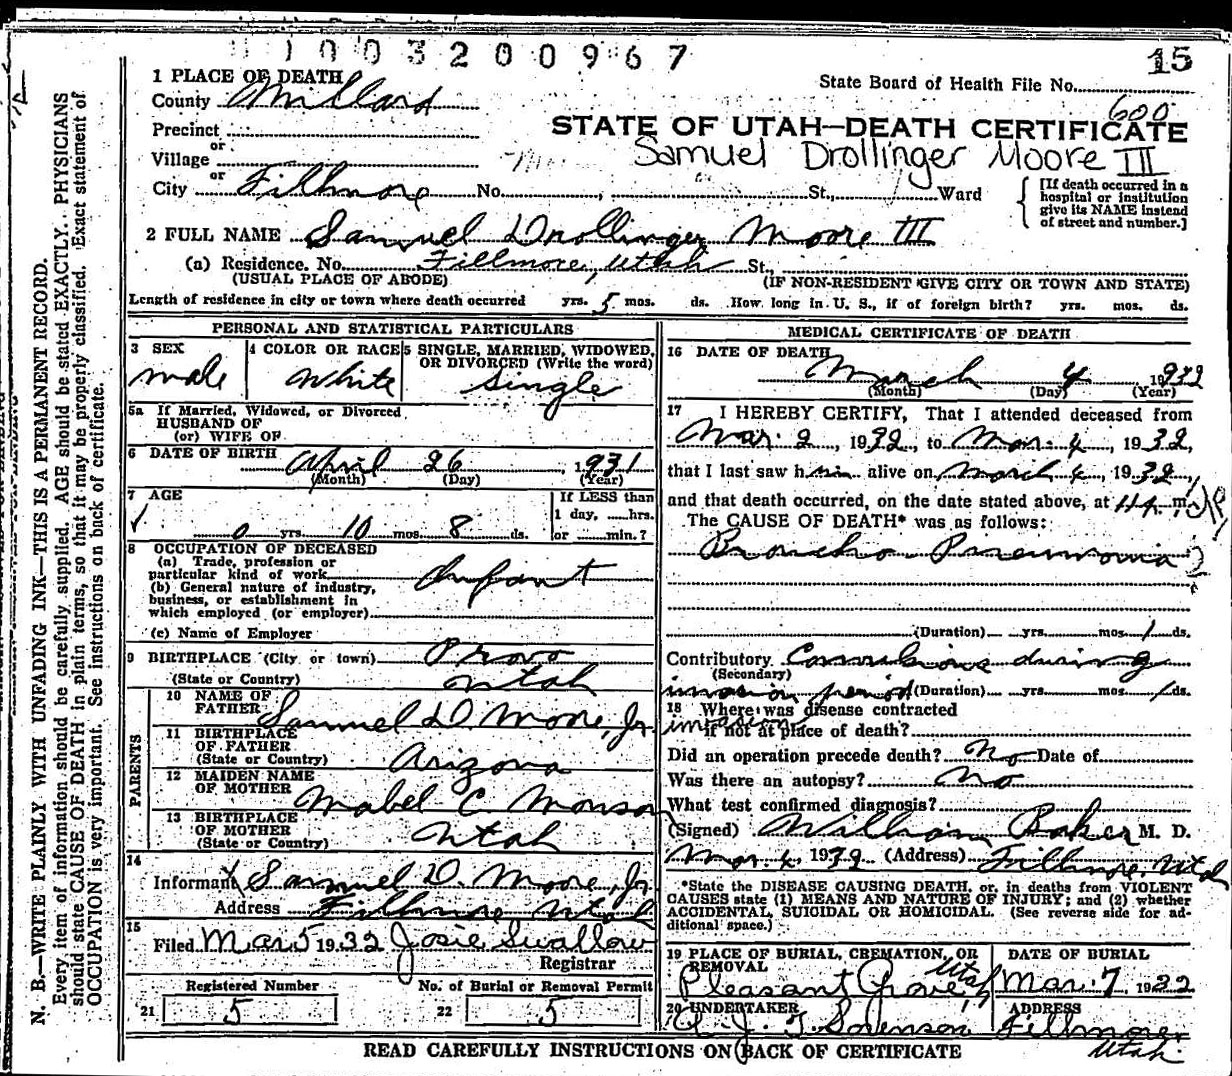 1003200967
15
1 PLACE OF DEATH
County Millard
State Board of Health File No.
600
Precinct
or
Village
or
City Fillmore No. St., Ward
STATE OF UTAH—DEATH CERTIFICATE
Samuel Drollinger Moore III
[If death occurred in a
hospital or institution
give its NAME instead
of street and number.]
2 FULL NAME Samuel Drollinger Moore III
(a) Residence. No. Fillmore, Utah St.,
(USUAL PLACE OF ABODE) (IF NON-RESIDENT GIVE CITY OR TOWN AND STATE)
Length of residence in city or town where death occurred yrs. 5 mos. ds. How long in U. S., if of foreign birth? yrs. mos. ds.
PERSONAL AND STATISTICAL PARTICULARS
3 SEX
male
4 COLOR OR RACE
White
5 SINGLE, MARRIED, WIDOWED,
OR DIVORCED (Write the word)
Single
5a If Married, Widowed, or Divorced
HUSBAND OF
(or) WIFE OF
6 DATE OF BIRTH
April 26, 1931
(Month) (Day) (Year)
7 AGE
0 yrs. 10 mos. 8 ds.
If LESS than
1 day, ......hrs.
or ........min.?
8 OCCUPATION OF DECEASED
(a) Trade, profession or
particular kind of work
Infant
(b) General nature of industry,
business, or establishment in
which employed (or employer)
(c) Name of Employer
9 BIRTHPLACE (City or town) Provo
(State or Country) Utah
PARENTS
10 NAME OF
FATHER Samuel D. Moore, Jr.
11 BIRTHPLACE
OF FATHER
(State or Country) Arizona
12 MAIDEN NAME
OF MOTHER Mabel C Monson
13 BIRTHPLACE
OF MOTHER
(State or Country) Utah
14
Informant Samuel D. Moore, Jr.
Address Fillmore, Utah
15
Filed Mar 5 1932 Josie Swallow
Registrar
Registered Number No. of Burial or Removal Permit
21 5 22 5
MEDICAL CERTIFICATE OF DEATH
16 DATE OF DEATH
March 4 1932
(Month) (Day) (Year)
17 I HEREBY CERTIFY, That I attended deceased from
Mar. 2, 1932, to Mar. 4, 1932,
that I last saw him alive on March 4, 1932,
and that death occurred, on the date stated above, at m.
The CAUSE OF DEATH* was as follows:
Broncho Pneumonia
(Duration) yrs. mos. 1 ds.
Contributory Convulsions during
(Secondary)
invasion period (Duration) yrs. mos. 1 ds.
18 Where was disease contracted
invasion
if not at place of death?
Did an operation precede death? No Date of
Was there an autopsy? No
What test confirmed diagnosis?
(Signed) William Baker M. D.
Mar. 4, 1932 (Address) Fillmore, Utah
*State the DISEASE CAUSING DEATH, or, in deaths from VIOLENT
CAUSES state (1) MEANS AND NATURE OF INJURY; and (2) whether
ACCIDENTAL, SUICIDAL OR HOMICIDAL. (See reverse side for ad-
ditional space.)
19 PLACE OF BURIAL, CREMATION, OR
REMOVAL
Pleasant Grove, Utah
DATE OF BURIAL
Mar. 7, 1932
20 UNDERTAKER
J. T. Sorenson
ADDRESS
Fillmore,
Utah.
READ CAREFULLY INSTRUCTIONS ON BACK OF CERTIFICATE
N. B.—WRITE PLAINLY WITH UNFADING INK—THIS IS A PERMANENT RECORD.
Every item of information should be carefully supplied. AGE should be stated EXACTLY. PHYSICIANS
should state CAUSE OF DEATH in plain terms, so that it may be properly classified. Exact statement of
OCCUPATION is very important. See instructions on back of certificate.